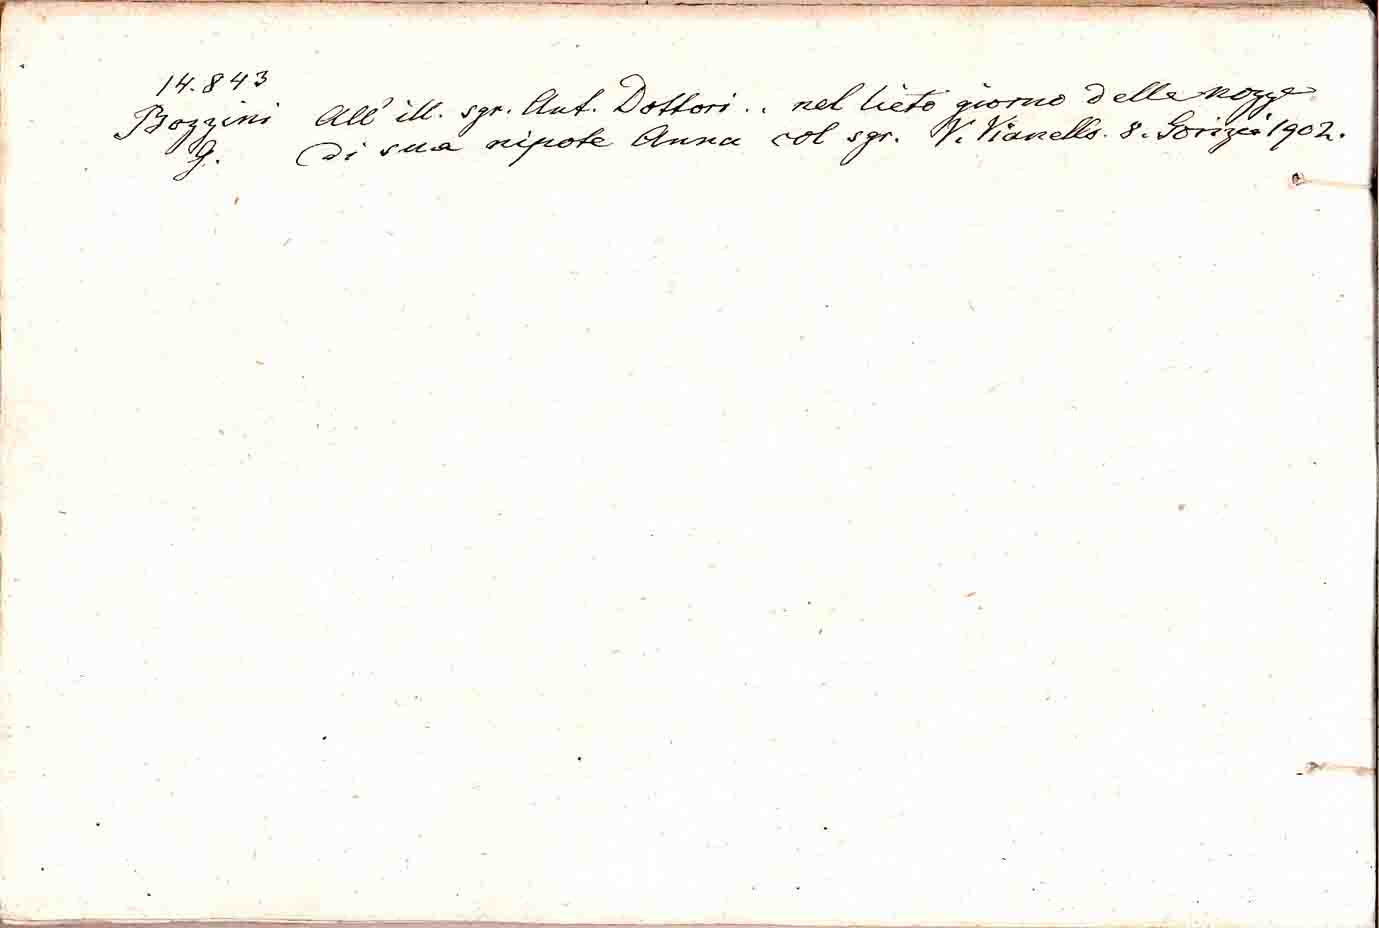 14.843
Bozzini All' ill. sgr. Ant. Dottori .. nel lieto giorno delle nozze
G. di sua nipote Anna col sgr. V. Vianello. 8. Gorizia 1902.